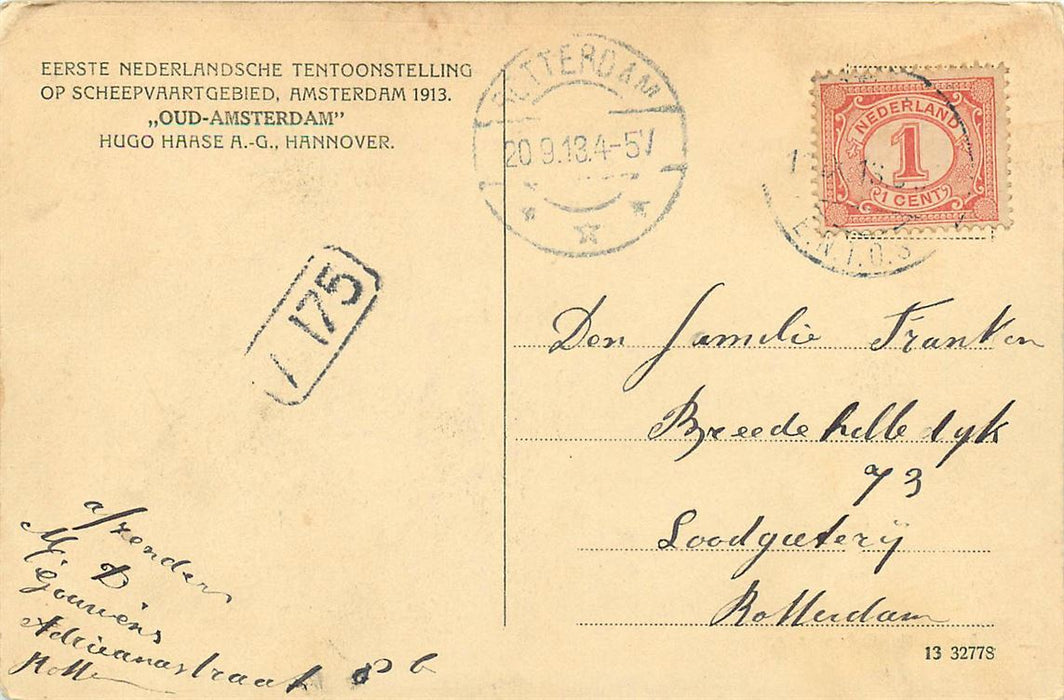 EERSTE NEDERLANDSCHE TENTOONSTELLING
OP SCHEEPVAARTGEBIED, AMSTERDAM 1913.
„OUD-AMSTERDAM”
HUGO HAASE A.-G., HANNOVER.
ROTTERDAM
20 9.13.4-5V
NEDERLAND
1
1 CENT
E.N.T.O.S
175
Den Familie Franken
Breedehilledyk
73
Loodgieterij
Rotterdam
afzender
D
Adrianastraat 8 b
13 32778